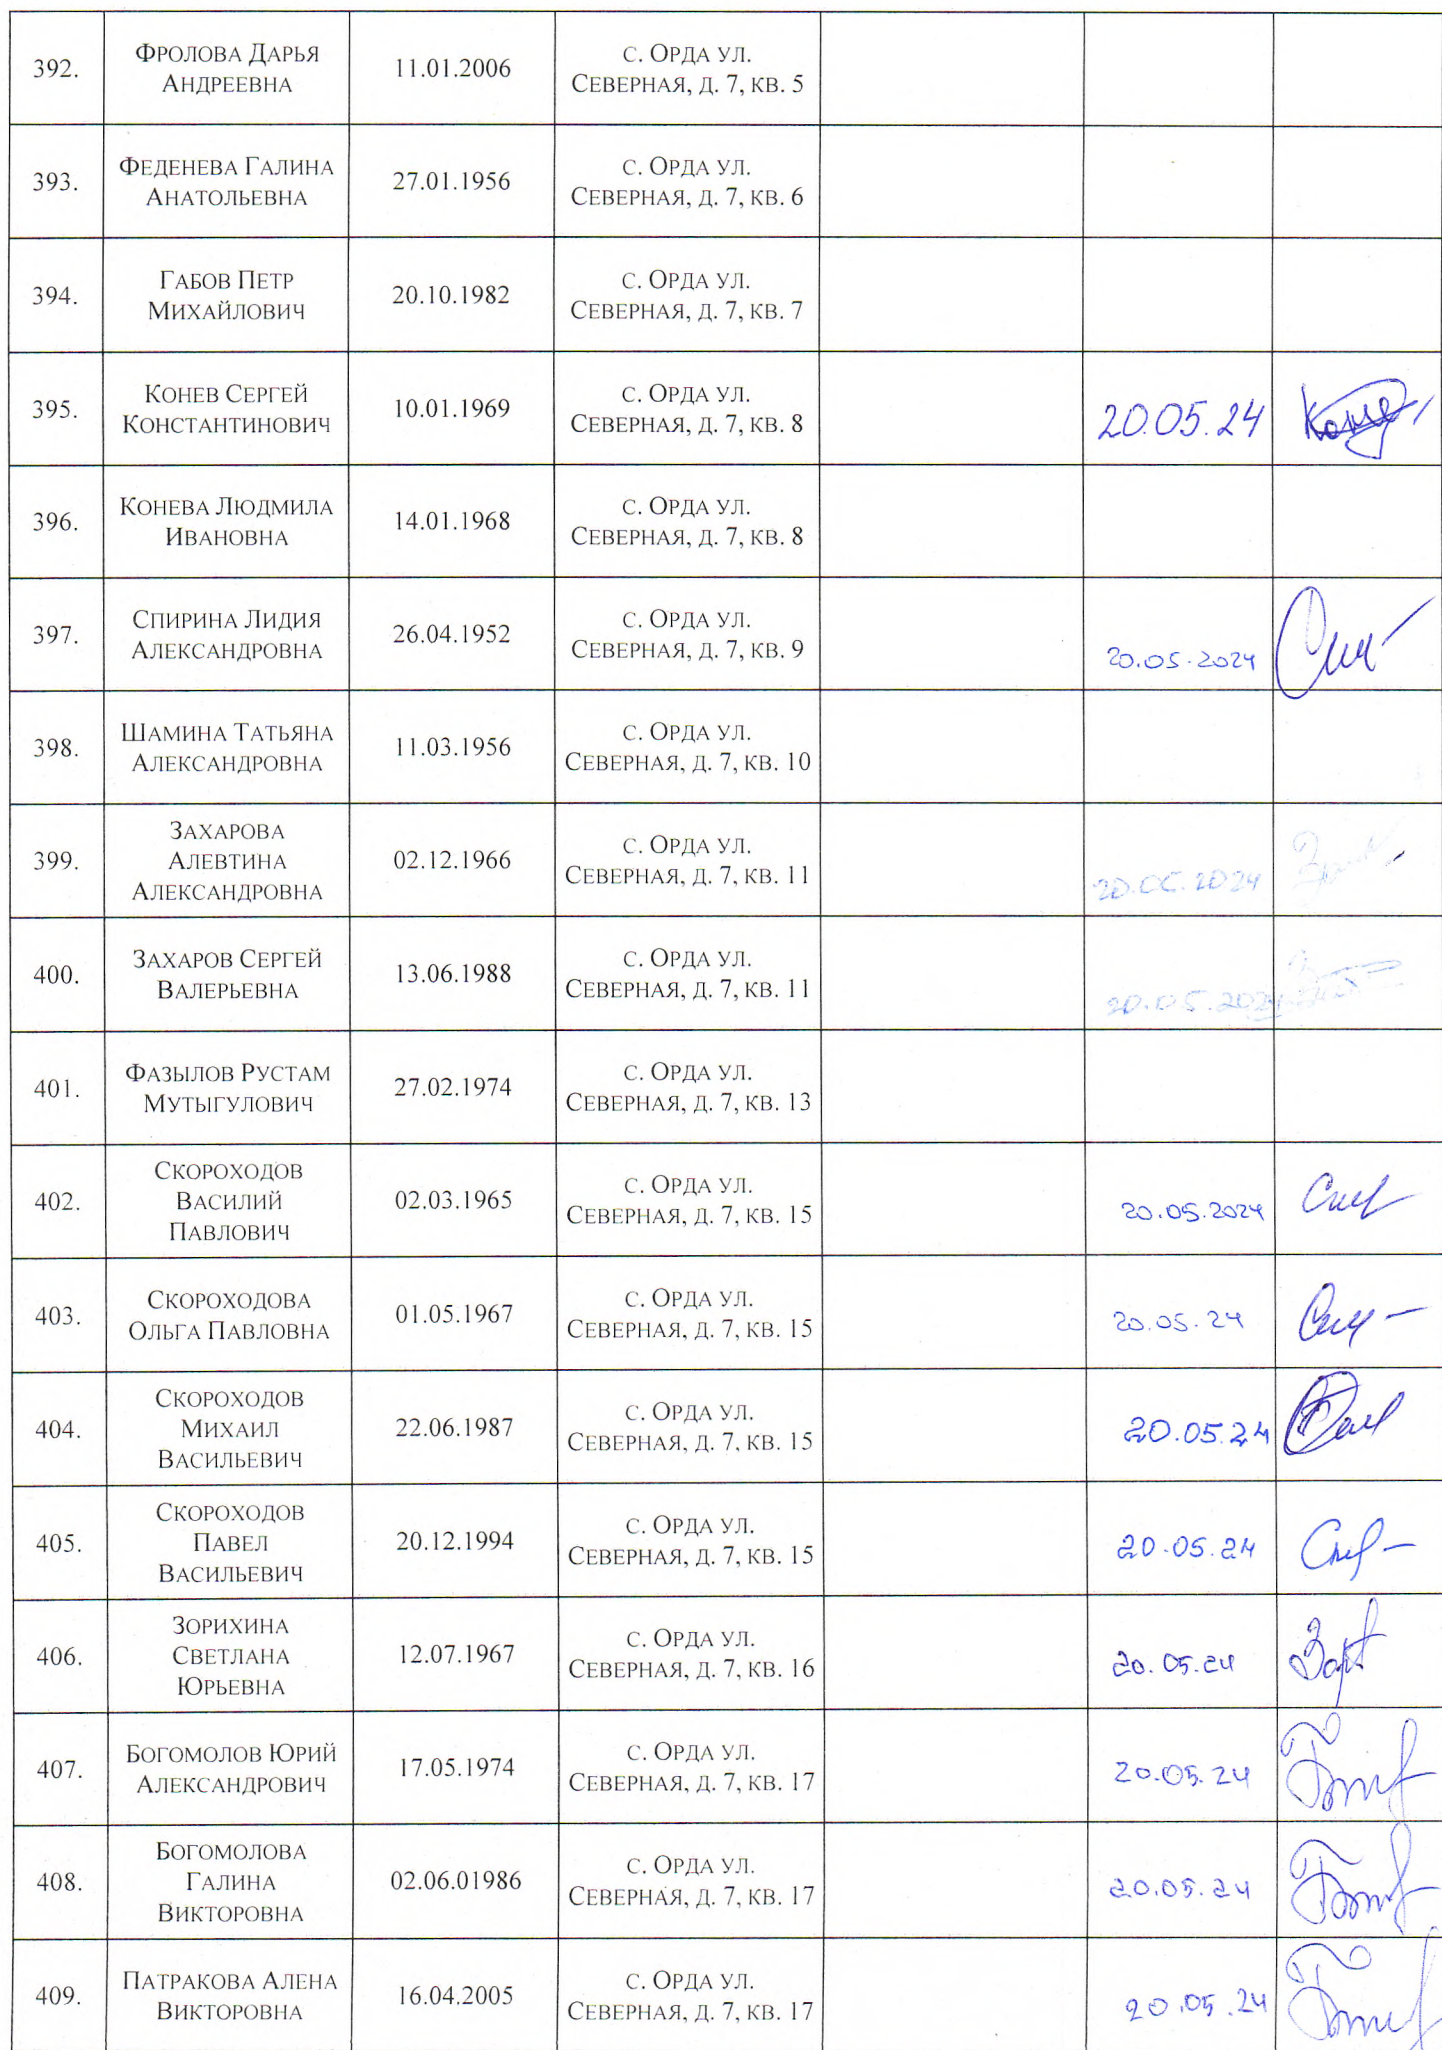 392.
ФРОЛОВА ДАРЬЯ
АНДРЕЕВНА
11.01.2006
С. ОРДА УЛ.
СЕВЕРНАЯ, Д. 7, КВ. 5
393.
ФЕДЕНЕВА ГАЛИНА
АНАТОЛЬЕВНА
27.01.1956
С. ОРДА УЛ.
СЕВЕРНАЯ, Д. 7, КВ. 6
394.
ГАБОВ ПЕТР
МИХАЙЛОВИЧ
20.10.1982
С. ОРДА УЛ.
СЕВЕРНАЯ, Д. 7, КВ. 7
395.
КОНЕВ СЕРГЕЙ
КОНСТАНТИНОВИЧ
10.01.1969
С. ОРДА УЛ.
СЕВЕРНАЯ, Д. 7, КВ. 8
20.05.24
396.
КОНЕВА ЛЮДМИЛА
ИВАНОВНА
14.01.1968
С. ОРДА УЛ.
СЕВЕРНАЯ, Д. 7, КВ. 8
397.
СПИРИНА ЛИДИЯ
АЛЕКСАНДРОВНА
26.04.1952
С. ОРДА УЛ.
СЕВЕРНАЯ, Д. 7, КВ. 9
20.05.2024
398.
ШАМИНА ТАТЬЯНА
АЛЕКСАНДРОВНА
11.03.1956
С. ОРДА УЛ.
СЕВЕРНАЯ, Д. 7, КВ. 10
399.
ЗАХАРОВА
АЛЕВТИНА
АЛЕКСАНДРОВНА
02.12.1966
С. ОРДА УЛ.
СЕВЕРНАЯ, Д. 7, КВ. 11
20.05.2024
400.
ЗАХАРОВ СЕРГЕЙ
ВАЛЕРЬЕВНА
13.06.1988
С. ОРДА УЛ.
СЕВЕРНАЯ, Д. 7, КВ. 11
20.05.2024
401.
ФАЗЫЛОВ РУСТАМ
МУТЫГУЛОВИЧ
27.02.1974
С. ОРДА УЛ.
СЕВЕРНАЯ, Д. 7, КВ. 13
402.
СКОРОХОДОВ
ВАСИЛИЙ
ПАВЛОВИЧ
02.03.1965
С. ОРДА УЛ.
СЕВЕРНАЯ, Д. 7, КВ. 15
20.05.2024
403.
СКОРОХОДОВА
ОЛЬГА ПАВЛОВНА
01.05.1967
С. ОРДА УЛ.
СЕВЕРНАЯ, Д. 7, КВ. 15
20.05.24
404.
СКОРОХОДОВ
МИХАИЛ
ВАСИЛЬЕВИЧ
22.06.1987
С. ОРДА УЛ.
СЕВЕРНАЯ, Д. 7, КВ. 15
20.05.24
405.
СКОРОХОДОВ
ПАВЕЛ
ВАСИЛЬЕВИЧ
20.12.1994
С. ОРДА УЛ.
СЕВЕРНАЯ, Д. 7, КВ. 15
20.05.24
406.
ЗОРИХИНА
СВЕТЛАНА
ЮРЬЕВНА
12.07.1967
С. ОРДА УЛ.
СЕВЕРНАЯ, Д. 7, КВ. 16
20.05.24
407.
БОГОМОЛОВ ЮРИЙ
АЛЕКСАНДРОВИЧ
17.05.1974
С. ОРДА УЛ.
СЕВЕРНАЯ, Д. 7, КВ. 17
20.05.24
408.
БОГОМОЛОВА
ГАЛИНА
ВИКТОРОВНА
02.06.01986
С. ОРДА УЛ.
СЕВЕРНАЯ, Д. 7, КВ. 17
20.05.24
409.
ПАТРАКОВА АЛЕНА
ВИКТОРОВНА
16.04.2005
С. ОРДА УЛ.
СЕВЕРНАЯ, Д. 7, КВ. 17
20.05.24